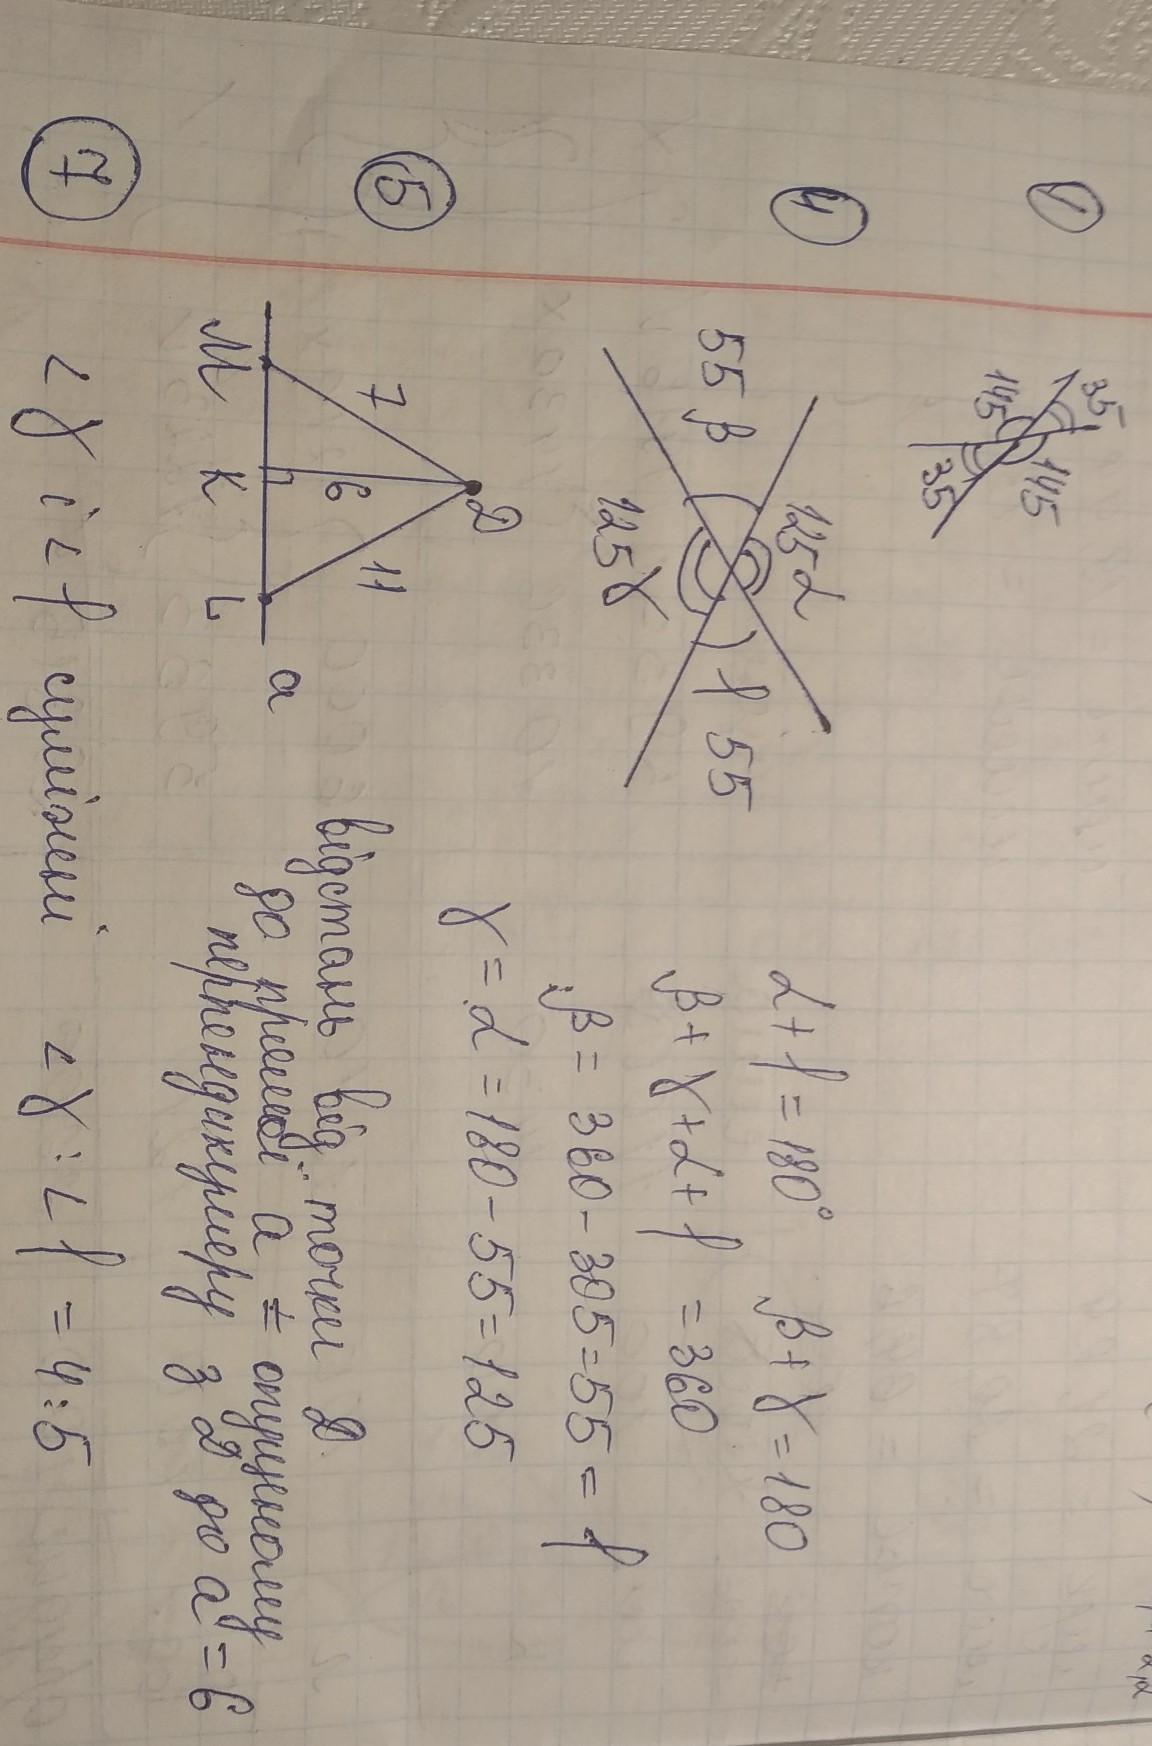 1
35
145
145
35
4
125 α
55 β
f 55
125 γ
α + f = 180° β + γ = 180
β + γ + α + f = 360
β = 360 - 305 = 55 = f
γ = α = 180 - 55 = 125
5
D
7
6
11
M
K
L
a
відстань від точки D
до прямої a = опущеному
перпендикуляру з D до a = 6
7
∠γ і ∠f суміжні ∠γ : ∠f = 4:5